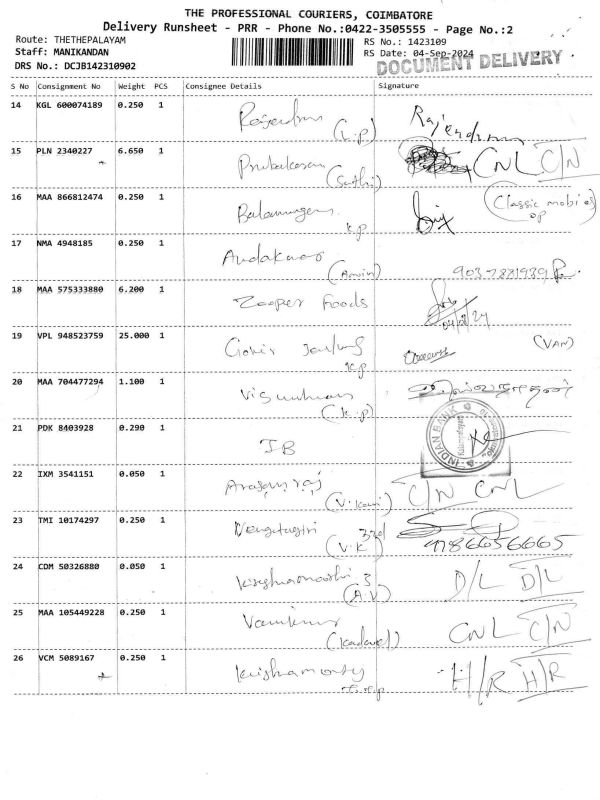 THE PROFESSIONAL COURIERS, COIMBATORE
Delivery Runsheet - PRR - Phone No.:0422-3505555 - Page No.:2
Route: THETHEPALAYAM
RS No.: 1423109
Staff: MANIKANDAN
RS Date: 04-Sep-2024
DRS No.: DCJB142310902
DOCUMENT DELIVERY
S No Consignment No Weight PCS Consignee Details Signature
14 KGL 600074189 0.250 1 Rajendran
15 PLN 2340227 6.650 1 Prabakaran CNL C/N
16 MAA 866812474 0.250 1 Balamurugan Classic mobiles
K.P OP
17 NMA 4948185 0.250 1
(Arvin) 9037881939
18 MAA 575333880 6.200 1 Zooper Foods
04/09/24
19 VPL 948523759 25.000 1 (VAN)
K.P
20 MAA 704477294 1.100 1
(K.P)
21 PDK 8403928 0.290 1 IB
INDIAN BANK
22 IXM 3541151 0.050 1 C/N CNL
23 TMI 10174297 0.250 1
(V.K) 9786656665
24 CDM 50326880 0.050 1 D/L D/L
(A.V)
25 MAA 105449228 0.250 1 CNL C/N
26 VCM 5089167 0.250 1 H/R H/R